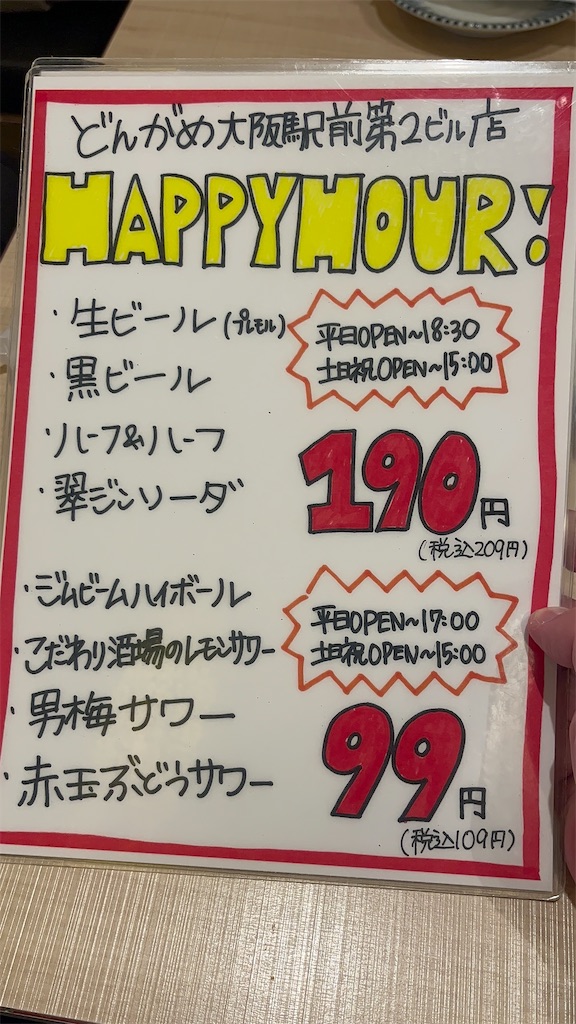 どんがめ大阪駅前第2ビル店
HAPPYHOUR!
・生ビール(プレモル)
平日OPEN~18:30
土日祝OPEN~15:00
・黒ビール
・ハーフ&ハーフ
・翠ジンソーダ
190円
(税込209円)
・ジムビームハイボール
・こだわり酒場のレモンサワー
平日OPEN~17:00
土日祝OPEN~15:00
・男梅サワー
・赤玉ぶどうサワー
99円
(税込109円)